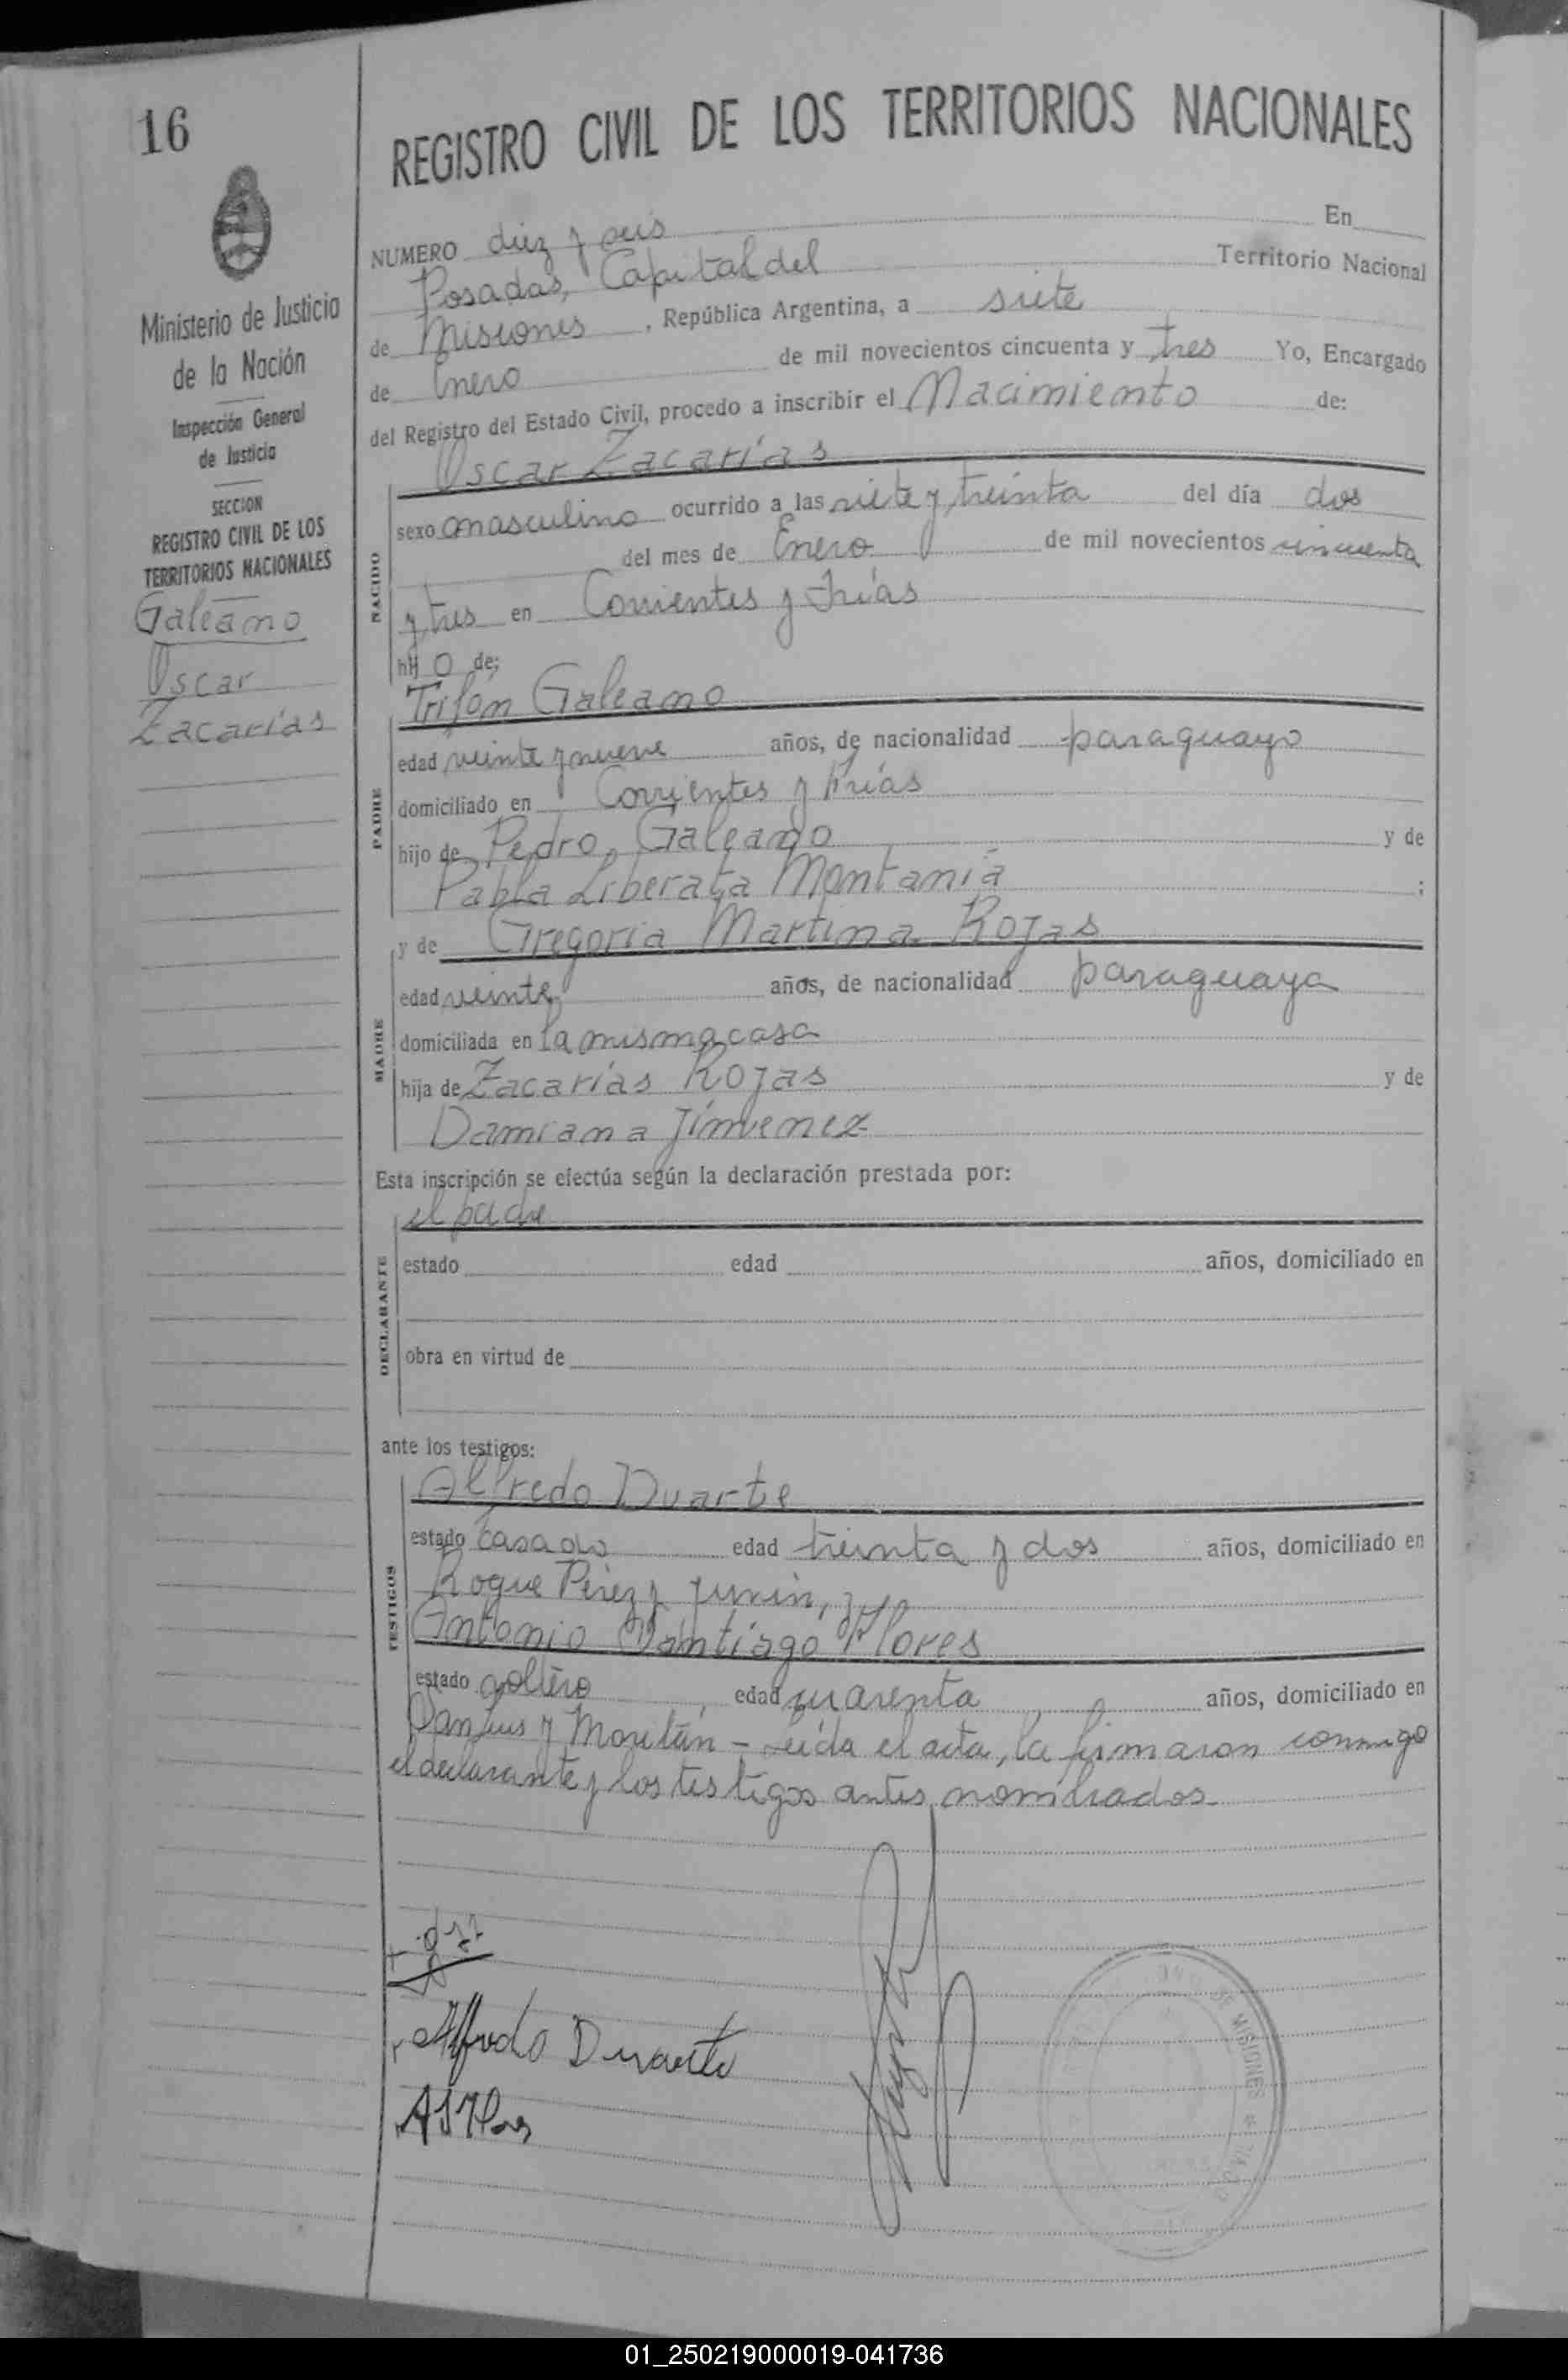 16
REGISTRO CIVIL DE LOS TERRITORIOS NACIONALES
Ministerio de Justicia
de la Nación
Inspección General
de Justicia
SECCION
REGISTRO CIVIL DE LOS
TERRITORIOS NACIONALES
Galeano
Oscar
Zacarías
NUMERO diez y seis En
Posadas, Capital del Territorio Nacional
de Misiones, República Argentina, a siete
de Enero de mil novecientos cincuenta y tres Yo, Encargado
del Registro del Estado Civil, procedo a inscribir el Nacimiento de:
Oscar Zacarías
NACIDO
sexo masculino ocurrido a las siete y treinta del día dos
del mes de Enero de mil novecientos cincuenta
y tres en Corrientes y Frías
hijo de;
Trifón Galeano
PADRE
edad veinte y nueve años, de nacionalidad paraguayo
domiciliado en Corrientes y Frías
hijo de Pedro Galeano y de
Pabla Liberata Montania ;
y de Gregoria Martina Rojas
MADRE
edad veinte años, de nacionalidad paraguaya
domiciliada en la misma casa
hija de Zacarías Rojas y de
Damiana Jimenez
Esta inscripción se efectúa según la declaración prestada por:
el padre
DECLARANTE
estado edad años, domiciliado en
obra en virtud de
ante los testigos:
Alfredo Duarte
TESTIGOS
estado casado edad treinta y dos años, domiciliado en
Roque Pérez y Junin, y
Antonio Santiago Flores
estado soltero edad cuarenta años, domiciliado en
San Luis y - Leída el acta, la firmaron conmigo
el declarante y los testigos antes nombrados
Alfredo Duarte
ASFlores
DE MISIONES
01_250219000019-041736